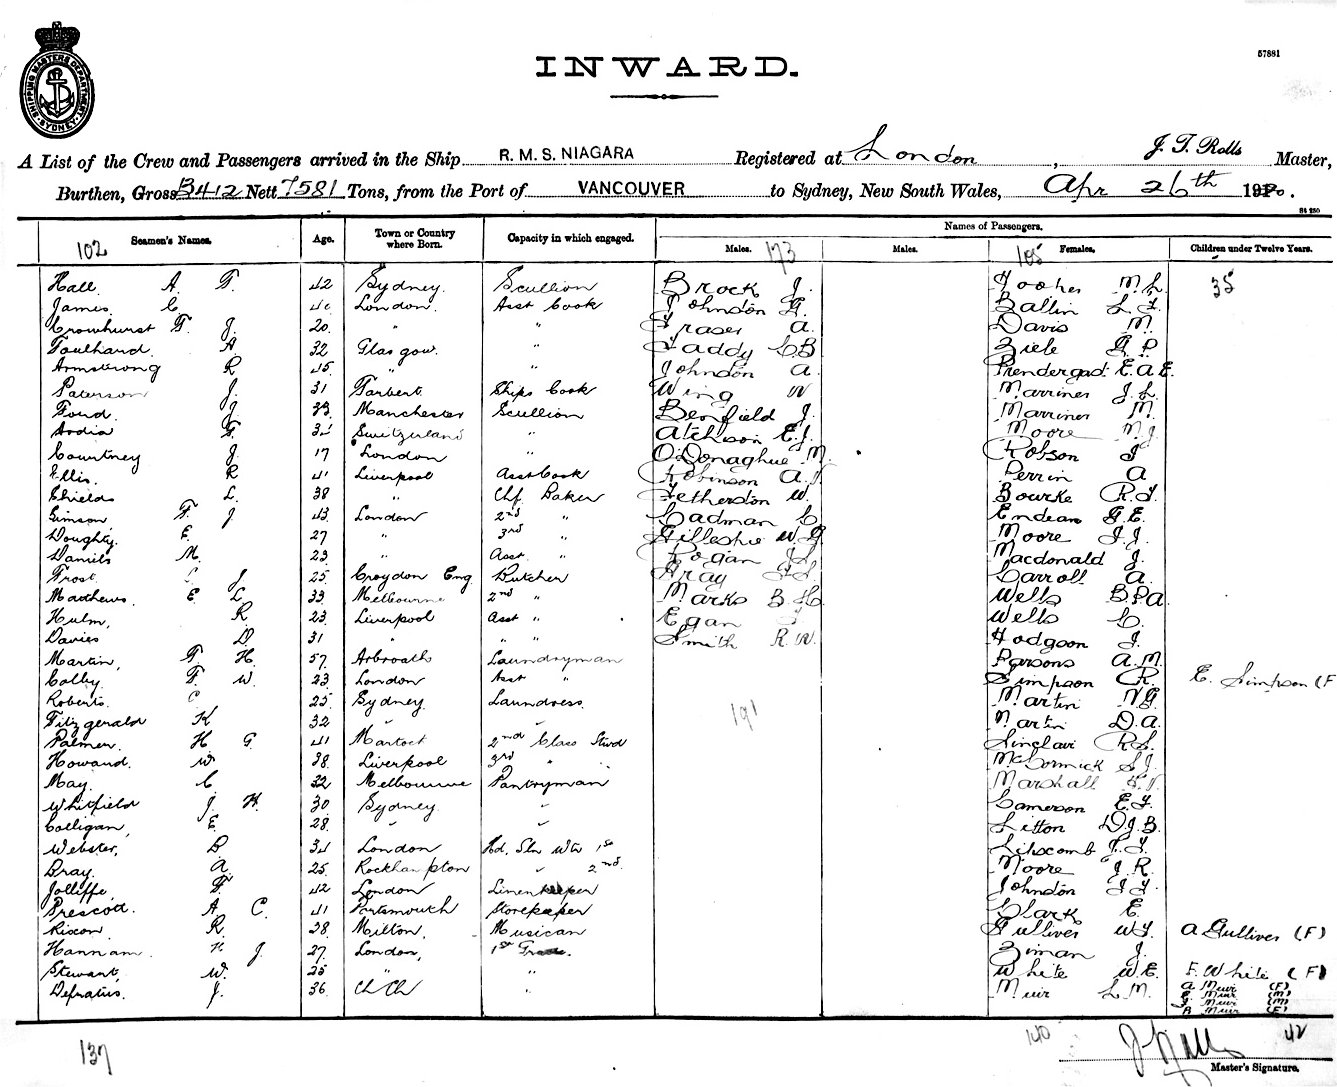 SHIPPING MASTERS DEPARTMENT SYDNEY
57881
INWARD.
A List of the Crew and Passengers arrived in the Ship R. M. S. NIAGARA Registered at London, J. T. Rolls Master,
Burthen, Gross 13412 Nett 7581 Tons, from the Port of VANCOUVER to Sydney, New South Wales, Apr 26th 1920.
St 250
Seamen's Names. Age. Town or Country where Born. Capacity in which engaged. Names of Passengers.
Males. Males. Females. Children under Twelve Years.
102 173 105 35
Hall A. F. 42 Sydney. Scullion Brock J. Tooher M. L.
James C. London. Asst Cook Johnson G. Ballin L. I.
Crowhurst F. J. 20. " " Fraser A. Davis M.
A 32 Glasgow. " Taddy C B Ziele G. P.
Armstrong R 45 " " Johnson A. Prendergast E. A. E.
Paterson J. 31 Tarbert. Ships Cook Wing W Marriner J. L.
Foud. J. 39. Manchester Scullion Benfield J. Marriner M.
F. Switzerland " Atchison E. J. Moore M. J.
Courtney J. 17 London " O'Donaghue M. Robson J
Ellis. R 41 Liverpool Asst Cook Robinson A. Perrin A
Shields L. 38 " Chf. Baker Fetherston W. Bourke R. I.
Gimson F. J 43. London 2nd " Cadman C Endean G. E.
Doughty. E. 27 " 3rd " Gillespie W. G Moore J. J.
Daniels M. 23 " Asst. " Rogan J. L Macdonald J.
Frost C J. 25 Croydon Eng Butcher Gray Carroll A.
Matthews. E L 33 Melbourne 2nd " Marks B. H. Wells B. P. A
Hulm, R 23. Liverpool Asst " Egan J. Wells C.
Davies D. 31 " " " Smith R. W. Hodgson J.
Martin, F. H. 57. Arbroath Laundryman Parsons A. M.
Colley F. W. 23 London Asst " Simpson R. E. Simpson (F
Roberts. C. 25. Sydney Laundress Martin V. G.
Fitzgerald K 32 " " Martin D. A.
Palmer. H G. 41 Martock 2nd Class Stwd Sinclair R. S.
191
Howard. W. 38. Liverpool 3rd " " McCormick S. J.
May. C. 32 Melbourne Pantryman Marshall
Whitfield J. H. 30 Sydney " Cameron E. I.
Colligan, E. 28. " " Litton D. J. B.
Webster, B 34 London Hd. Wtr 1st Liscomb
Bray. A. 25. Rockhampton " 2nd. Moore J. R.
Jolliffe. F. 42 London Linenkeeper Johnson
Prescott. A C. 41 Portsmouth Storekeeper Clark E.
Rixon R. 38 Milton, Musican Gulliver W. I. A Gulliver (F)
Hannam. H J. 27. London, 1st Grade. Ziman J.
Stewart, W. 25 " " White W. E. F. White (F)
Defratus. J. 36 Ch Ch " Muir L. M. A Muir (F)
E. Muir (M)
J. Muir (M)
B Muir (F)
137 140 42
J T Rolls
Master's Signature.